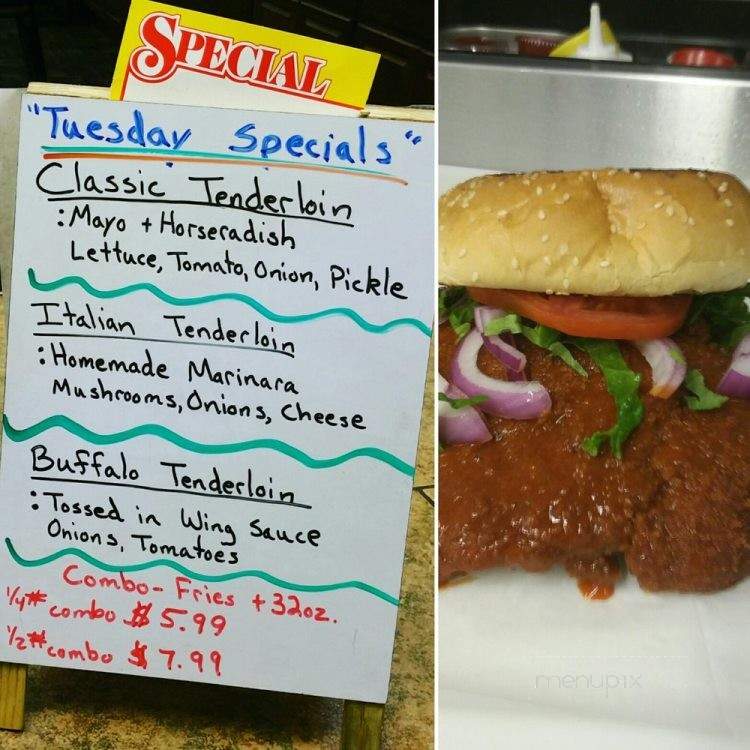 SPECIAL
"Tuesday Specials"
Classic Tenderloin
: Mayo + Horseradish
Lettuce, Tomato, Onion, Pickle
Italian Tenderloin
: Homemade Marinara
Mushrooms, Onions, Cheese
Buffalo Tenderloin
: Tossed in Wing Sauce
Onions, Tomatoes
Combo - Fries + 32oz.
1/4# combo $5.99
1/2# combo $7.99
menupix